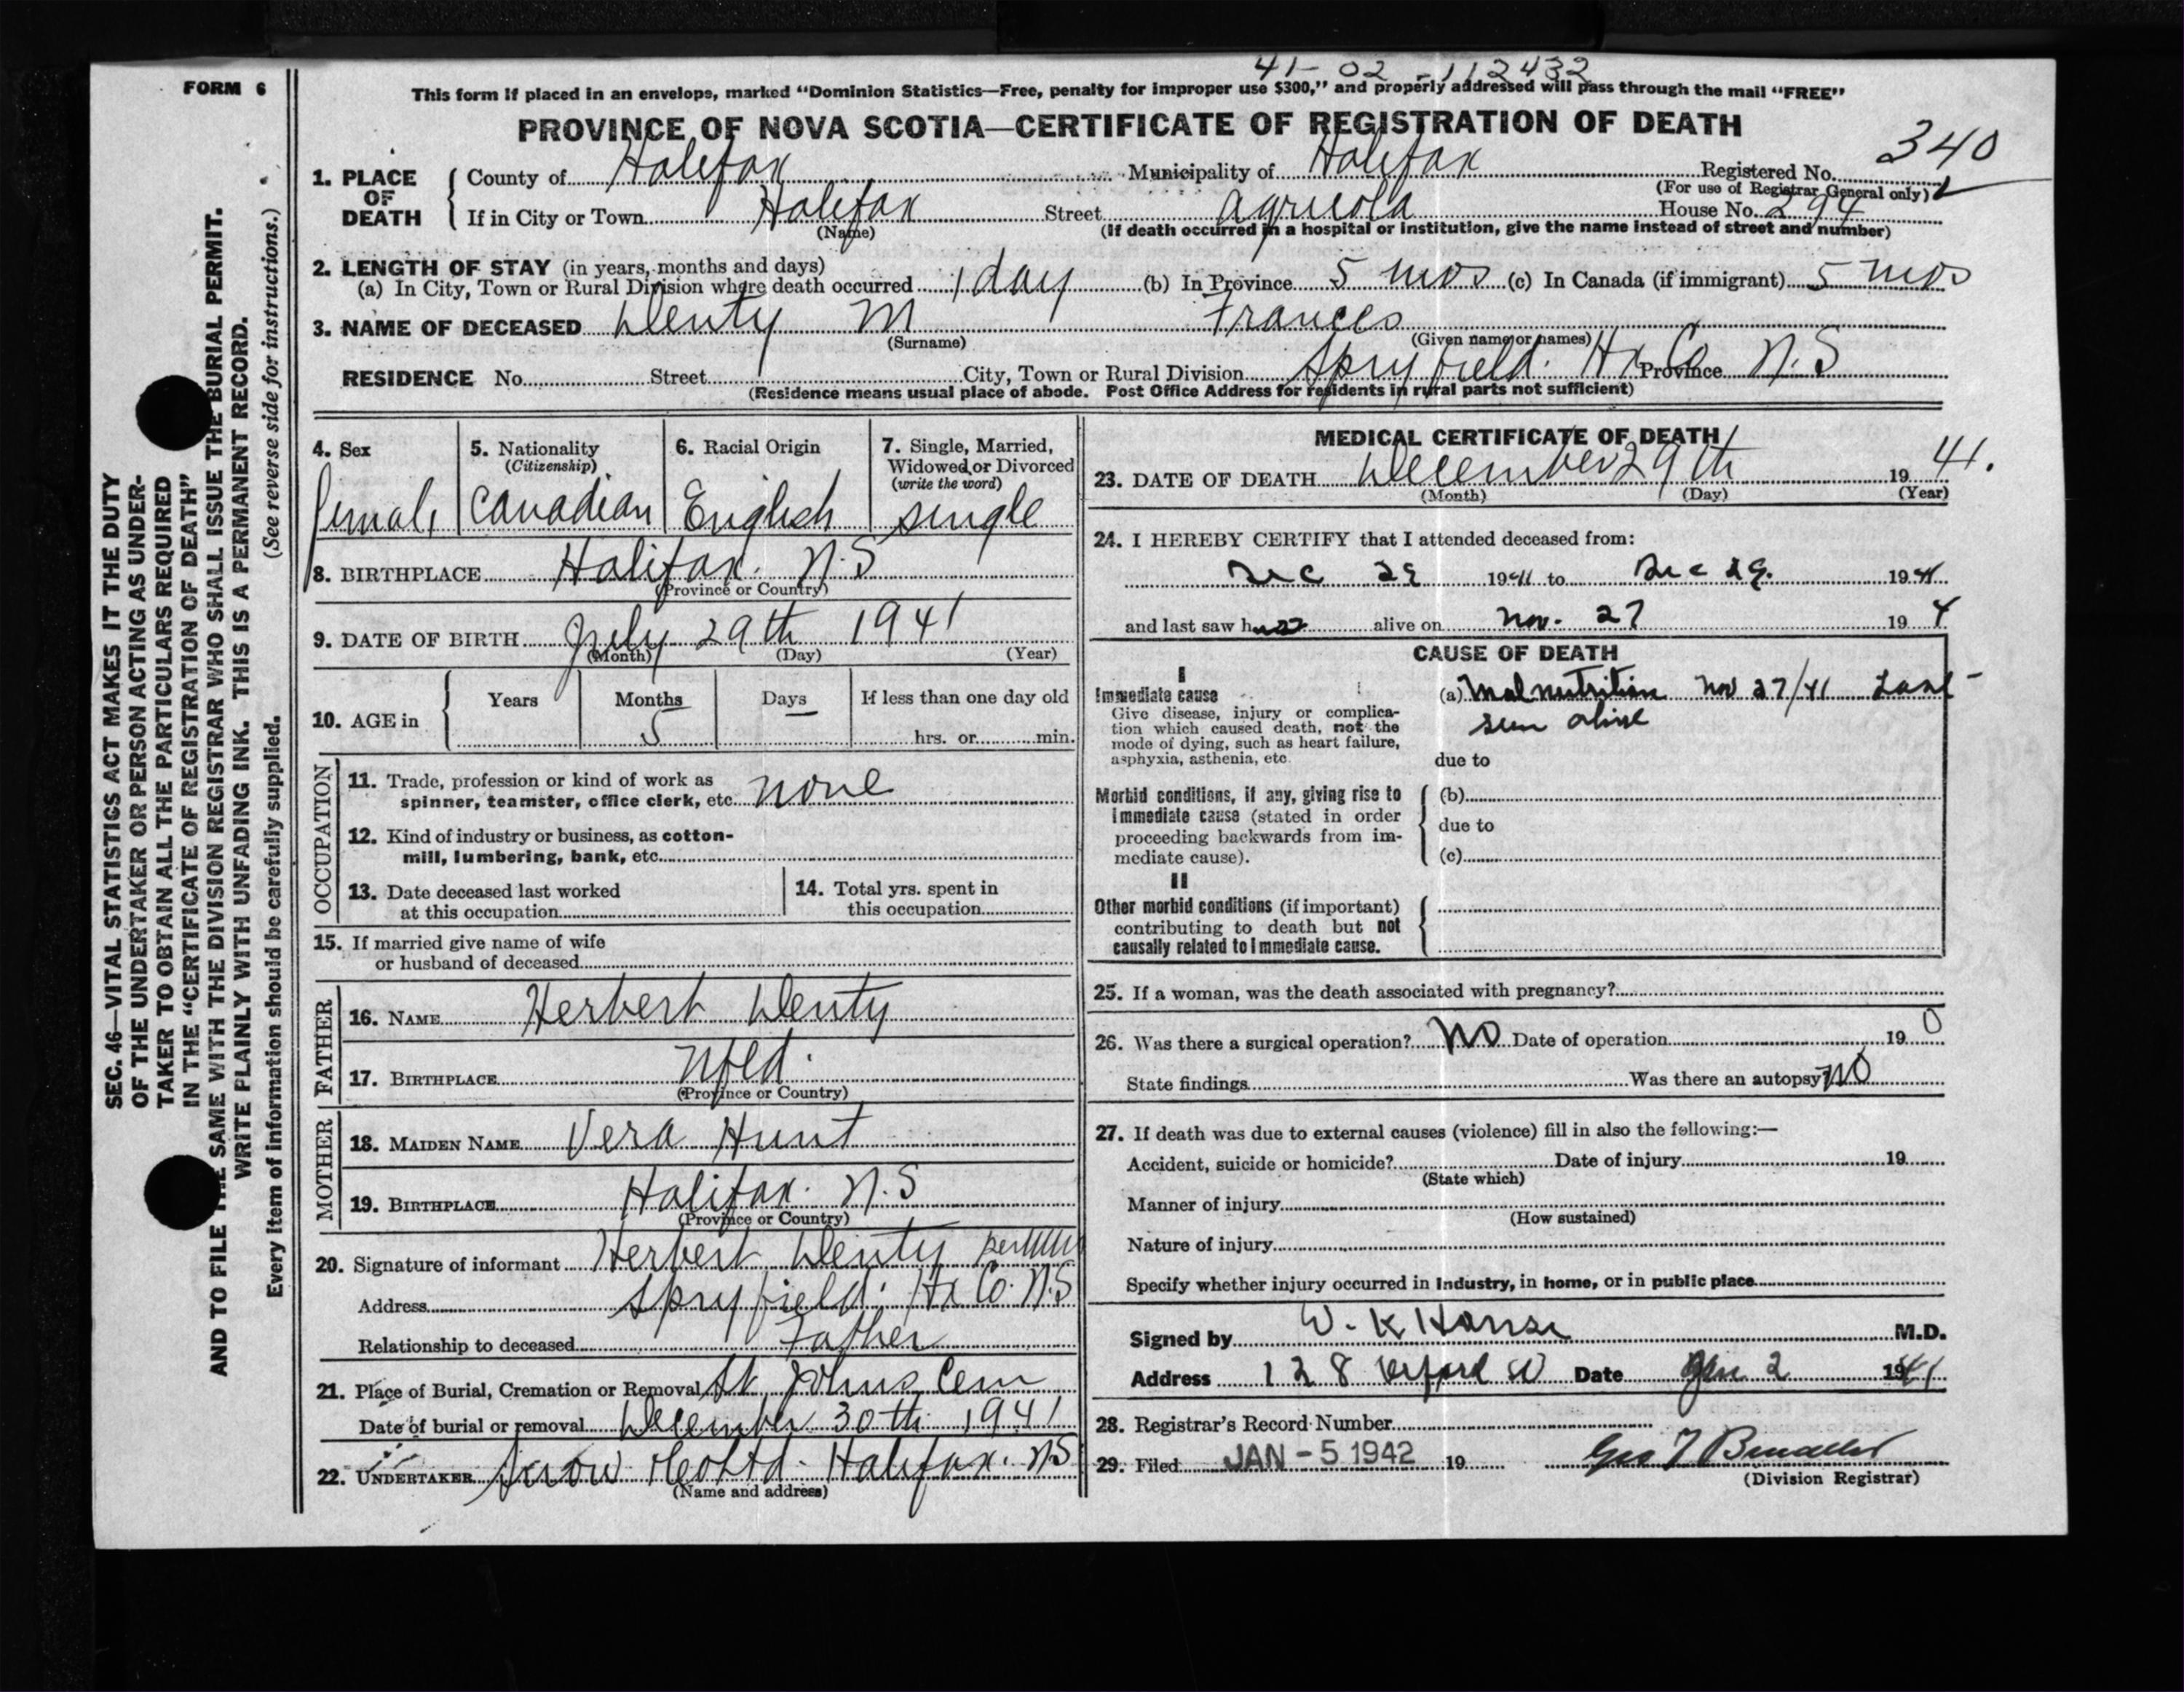 FORM 6
41-02-112432
This form if placed in an envelope, marked “Dominion Statistics—Free, penalty for improper use $300,” and properly addressed will pass through the mail “FREE”
PROVINCE OF NOVA SCOTIA—CERTIFICATE OF REGISTRATION OF DEATH
340
1. PLACE OF DEATH County of Halifax Municipality of Halifax Registered No.
(For use of Registrar General only)
If in City or Town Halifax Street Agricola House No. 294
(Name) (If death occurred in a hospital or institution, give the name instead of street and number)
2. LENGTH OF STAY (in years, months and days)
(a) In City, Town or Rural Division where death occurred 1 day (b) In Province 5 mos (c) In Canada (if immigrant) 5 mos
3. NAME OF DECEASED Denty M Frances
(Surname) (Given name or names)
RESIDENCE No. Street City, Town or Rural Division Spryfield. Hx Co Province N.S
(Residence means usual place of abode. Post Office Address for residents in rural parts not sufficient)
4. Sex 5. Nationality 6. Racial Origin 7. Single, Married,
(Citizenship) Widowed or Divorced
(write the word)
Female Canadian English single
8. BIRTHPLACE Halifax. N.S
(Province or Country)
9. DATE OF BIRTH July 29th 1941
(Month) (Day) (Year)
10. AGE in Years Months Days If less than one day old
5 — hrs. or min.
OCCUPATION
11. Trade, profession or kind of work as
spinner, teamster, office clerk, etc. none
12. Kind of industry or business, as cotton-
mill, lumbering, bank, etc.
13. Date deceased last worked
at this occupation
14. Total yrs. spent in
this occupation
15. If married give name of wife
or husband of deceased
FATHER
16. NAME Herbert Denty
17. BIRTHPLACE Nfld.
(Province or Country)
MOTHER
18. MAIDEN NAME Vera Hunt
19. BIRTHPLACE Halifax. N.S
(Province or Country)
20. Signature of informant Herbert Denty
Address Spryfield. Hx Co. N.S
Relationship to deceased Father
21. Place of Burial, Cremation or Removal St Johns Cem
Date of burial or removal December 30th 1941
22. UNDERTAKER Snow & Co Ltd. Halifax. NS
(Name and address)
MEDICAL CERTIFICATE OF DEATH
23. DATE OF DEATH December 29th 1941.
(Month) (Day) (Year)
24. I HEREBY CERTIFY that I attended deceased from:
Dec 29 1941 to Dec 29. 1941
and last saw her alive on Nov. 27 194
CAUSE OF DEATH
I
Immediate cause
Give disease, injury or complica-
tion which caused death, not the
mode of dying, such as heart failure,
asphyxia, asthenia, etc.
(a) Malnutrition Nov 27/41 Last-
seen alive
due to
Morbid conditions, if any, giving rise to
immediate cause (stated in order
proceeding backwards from im-
mediate cause).
(b)
due to
(c)
II
Other morbid conditions (if important)
contributing to death but not
causally related to immediate cause.
25. If a woman, was the death associated with pregnancy?
26. Was there a surgical operation? No Date of operation 19 0
State findings Was there an autopsy No
27. If death was due to external causes (violence) fill in also the following:—
Accident, suicide or homicide? Date of injury 19
(State which)
Manner of injury
(How sustained)
Nature of injury
Specify whether injury occurred in industry, in home, or in public place
Signed by W. K House M.D.
Address 128 Oxford St Date Jan 2 1941
28. Registrar's Record Number
29. Filed JAN - 5 1942 19
(Division Registrar)
SEC. 46—VITAL STATISTICS ACT MAKES IT THE DUTY
OF THE UNDERTAKER OR PERSON ACTING AS UNDER-
TAKER TO OBTAIN ALL THE PARTICULARS REQUIRED
IN THE “CERTIFICATE OF REGISTRATION OF DEATH”
AND TO FILE THE SAME WITH THE DIVISION REGISTRAR WHO SHALL ISSUE THE BURIAL PERMIT.
WRITE PLAINLY WITH UNFADING INK. THIS IS A PERMANENT RECORD.
Every item of information should be carefully supplied. (See reverse side for instructions.)